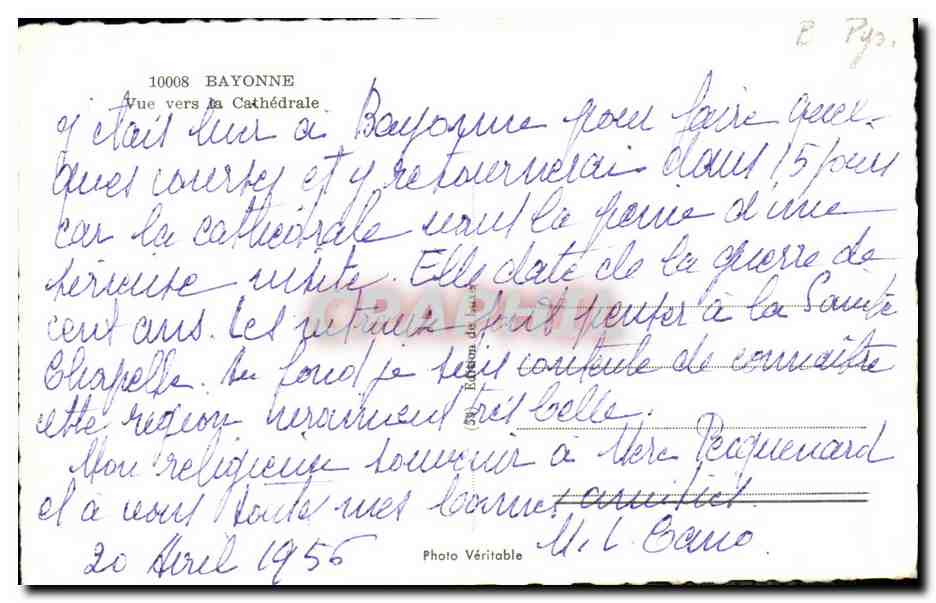 B Pyr.
10008 BAYONNE
Vue vers la Cathédrale
J'étais hier à Bayonne pour faire quel-
ques courses et y retournerai dans 15 jours
car la cathédrale vaut la peine d'une
sérieuse visite. Elle date de la guerre de
cent ans. Les vitraux font penser à la Sainte
Chapelle. Au fond je suis contente de connaître
cette région vraiment très belle.
Mon religieux souvenir à Mère Pecquenard
et à vous toutes mes bonnes amitiés.
20 Avril 1956
M. L. Cano.
Photo Véritable
Edition de